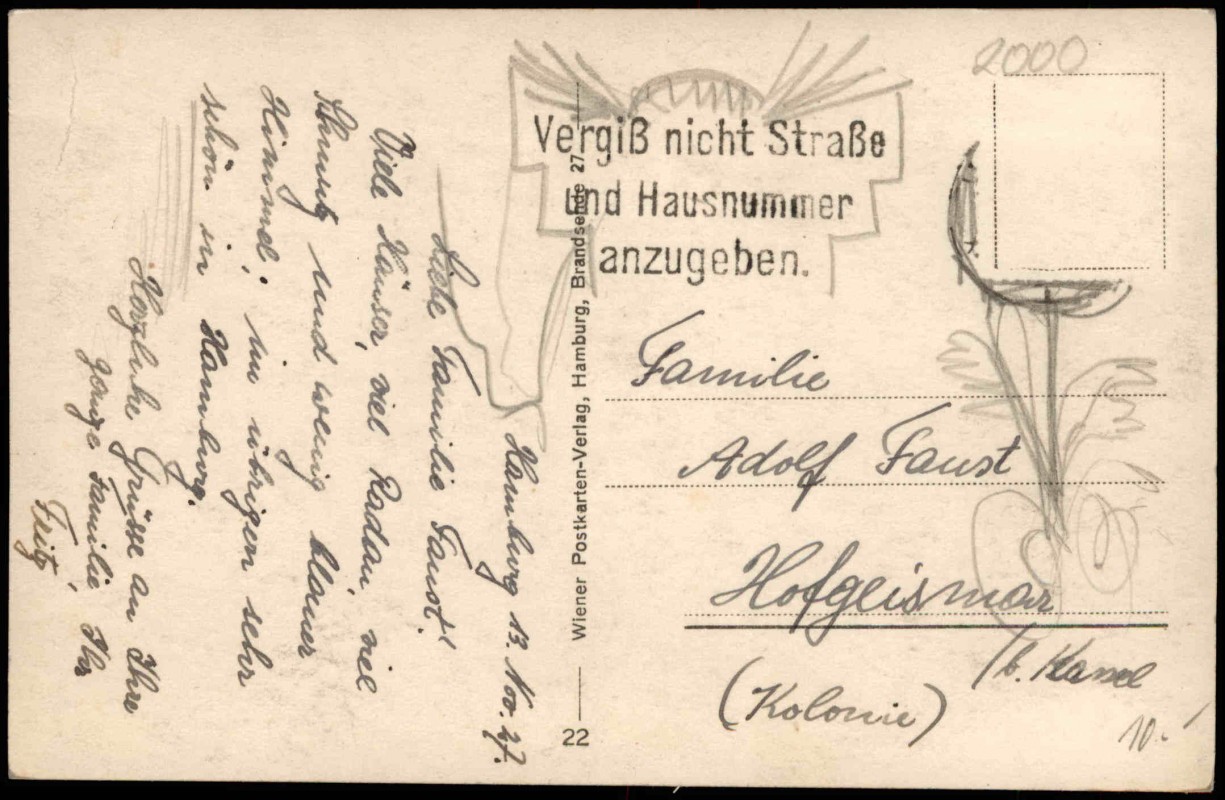 Hamburg 13. Nov. 27.
Liebe Familie Faust!
Viele Häuser, viel Radau, viel
Schmutz und wenig blauer
Himmel; im übrigen sehr
schön in Hamburg.
Herzliche Grüsse an Ihre
ganze Familie Ihr
Fritz.
Wiener Postkarten-Verlag, Hamburg, Brandsende 27
22
Vergiß nicht Straße
und Hausnummer
anzugeben.
2000
Familie
Adolf Faust
Hofgeismar
/b. Kassel
(Kolonie)
10.-